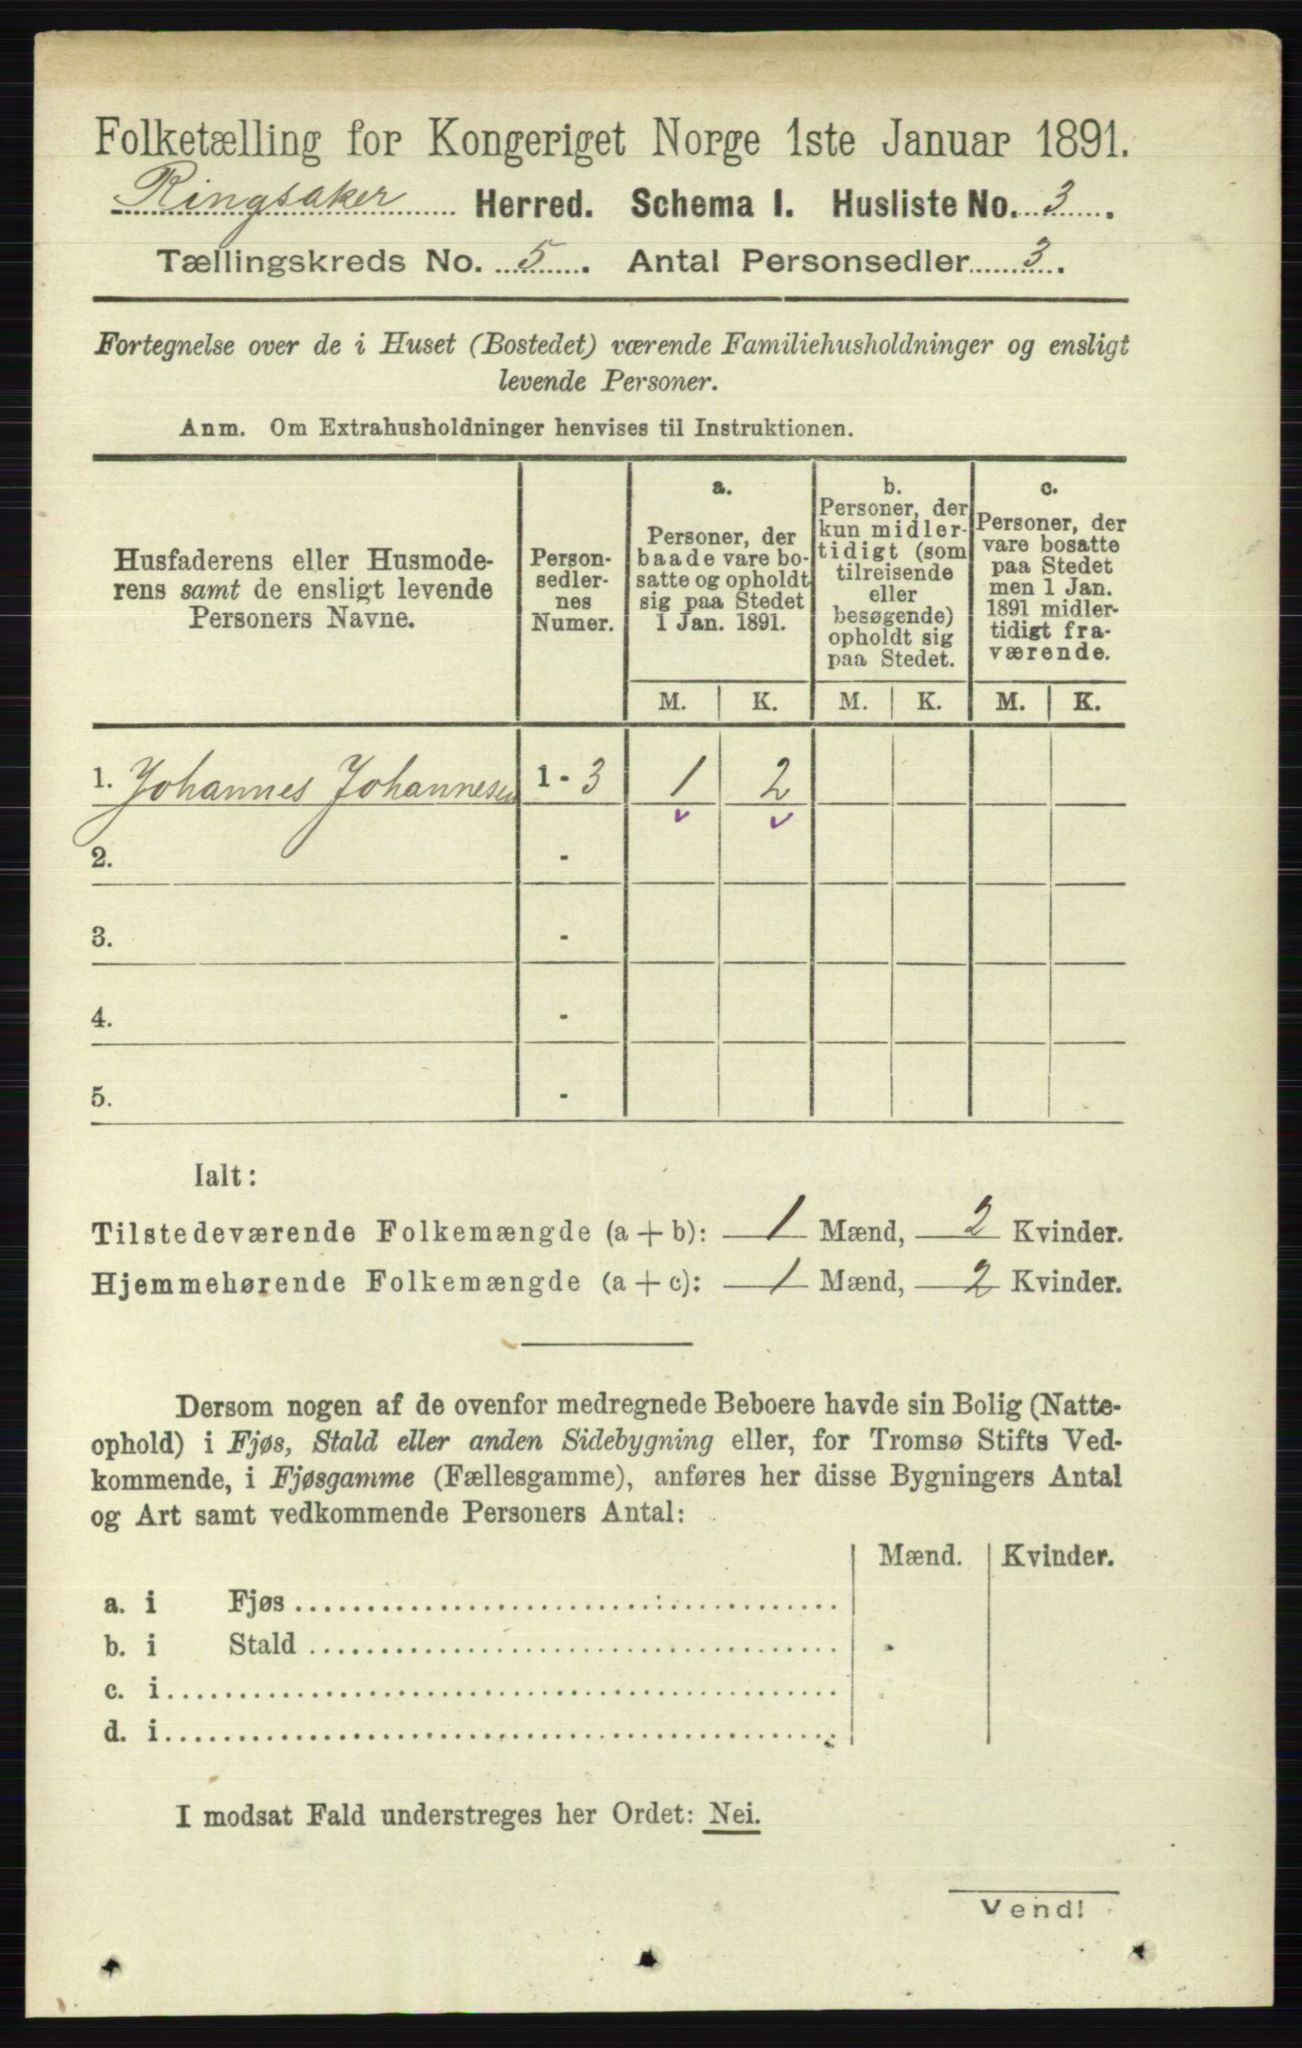 Folketælling for Kongeriget Norge 1ste Januar 1891.
Ringsaker Herred. Schema I. Husliste No. 3.
Tællingskreds No. 5. Antal Personsedler 3.
Fortegnelse over de i Huset (Bostedet) værende Familiehusholdninger og ensligt
levende Personer.
Anm. Om Extrahusholdninger henvises til Instruktionen.
Husfaderens eller Husmode-
rens samt de ensligt levende
Personers Navne.
Person-
sedler-
nes
Numer.
a.
Personer, der
baade vare bo-
satte og opholdt
sig paa Stedet
1 Jan. 1891.
b.
Personer, der
kun midler-
tidigt (som
tilreisende
eller
besøgende)
opholdt sig
paa Stedet.
c.
Personer, der
vare bosatte
paa Stedet
men 1 Jan.
1891 midler-
tidigt fra-
værende.
M. K. M. K. M. K.
1. Johannes Johannesen 1 - 3 1 2
2. -
3. -
4. -
5. -
Ialt:
Tilstedeværende Folkemængde (a + b): 1 Mænd, 2 Kvinder.
Hjemmehørende Folkemængde (a + c): 1 Mænd, 2 Kvinder.
Dersom nogen af de ovenfor medregnede Beboere havde sin Bolig (Natte-
ophold) i Fjøs, Stald eller anden Sidebygning eller, for Tromsø Stifts Ved-
kommende, i Fjøsgamme (Fællesgamme), anføres her disse Bygningers Antal
og Art samt vedkommende Personers Antal:
Mænd. Kvinder.
a. i Fjøs
b. i Stald
c. i
d. i
I modsat Fald understreges her Ordet: Nei.
Vend!